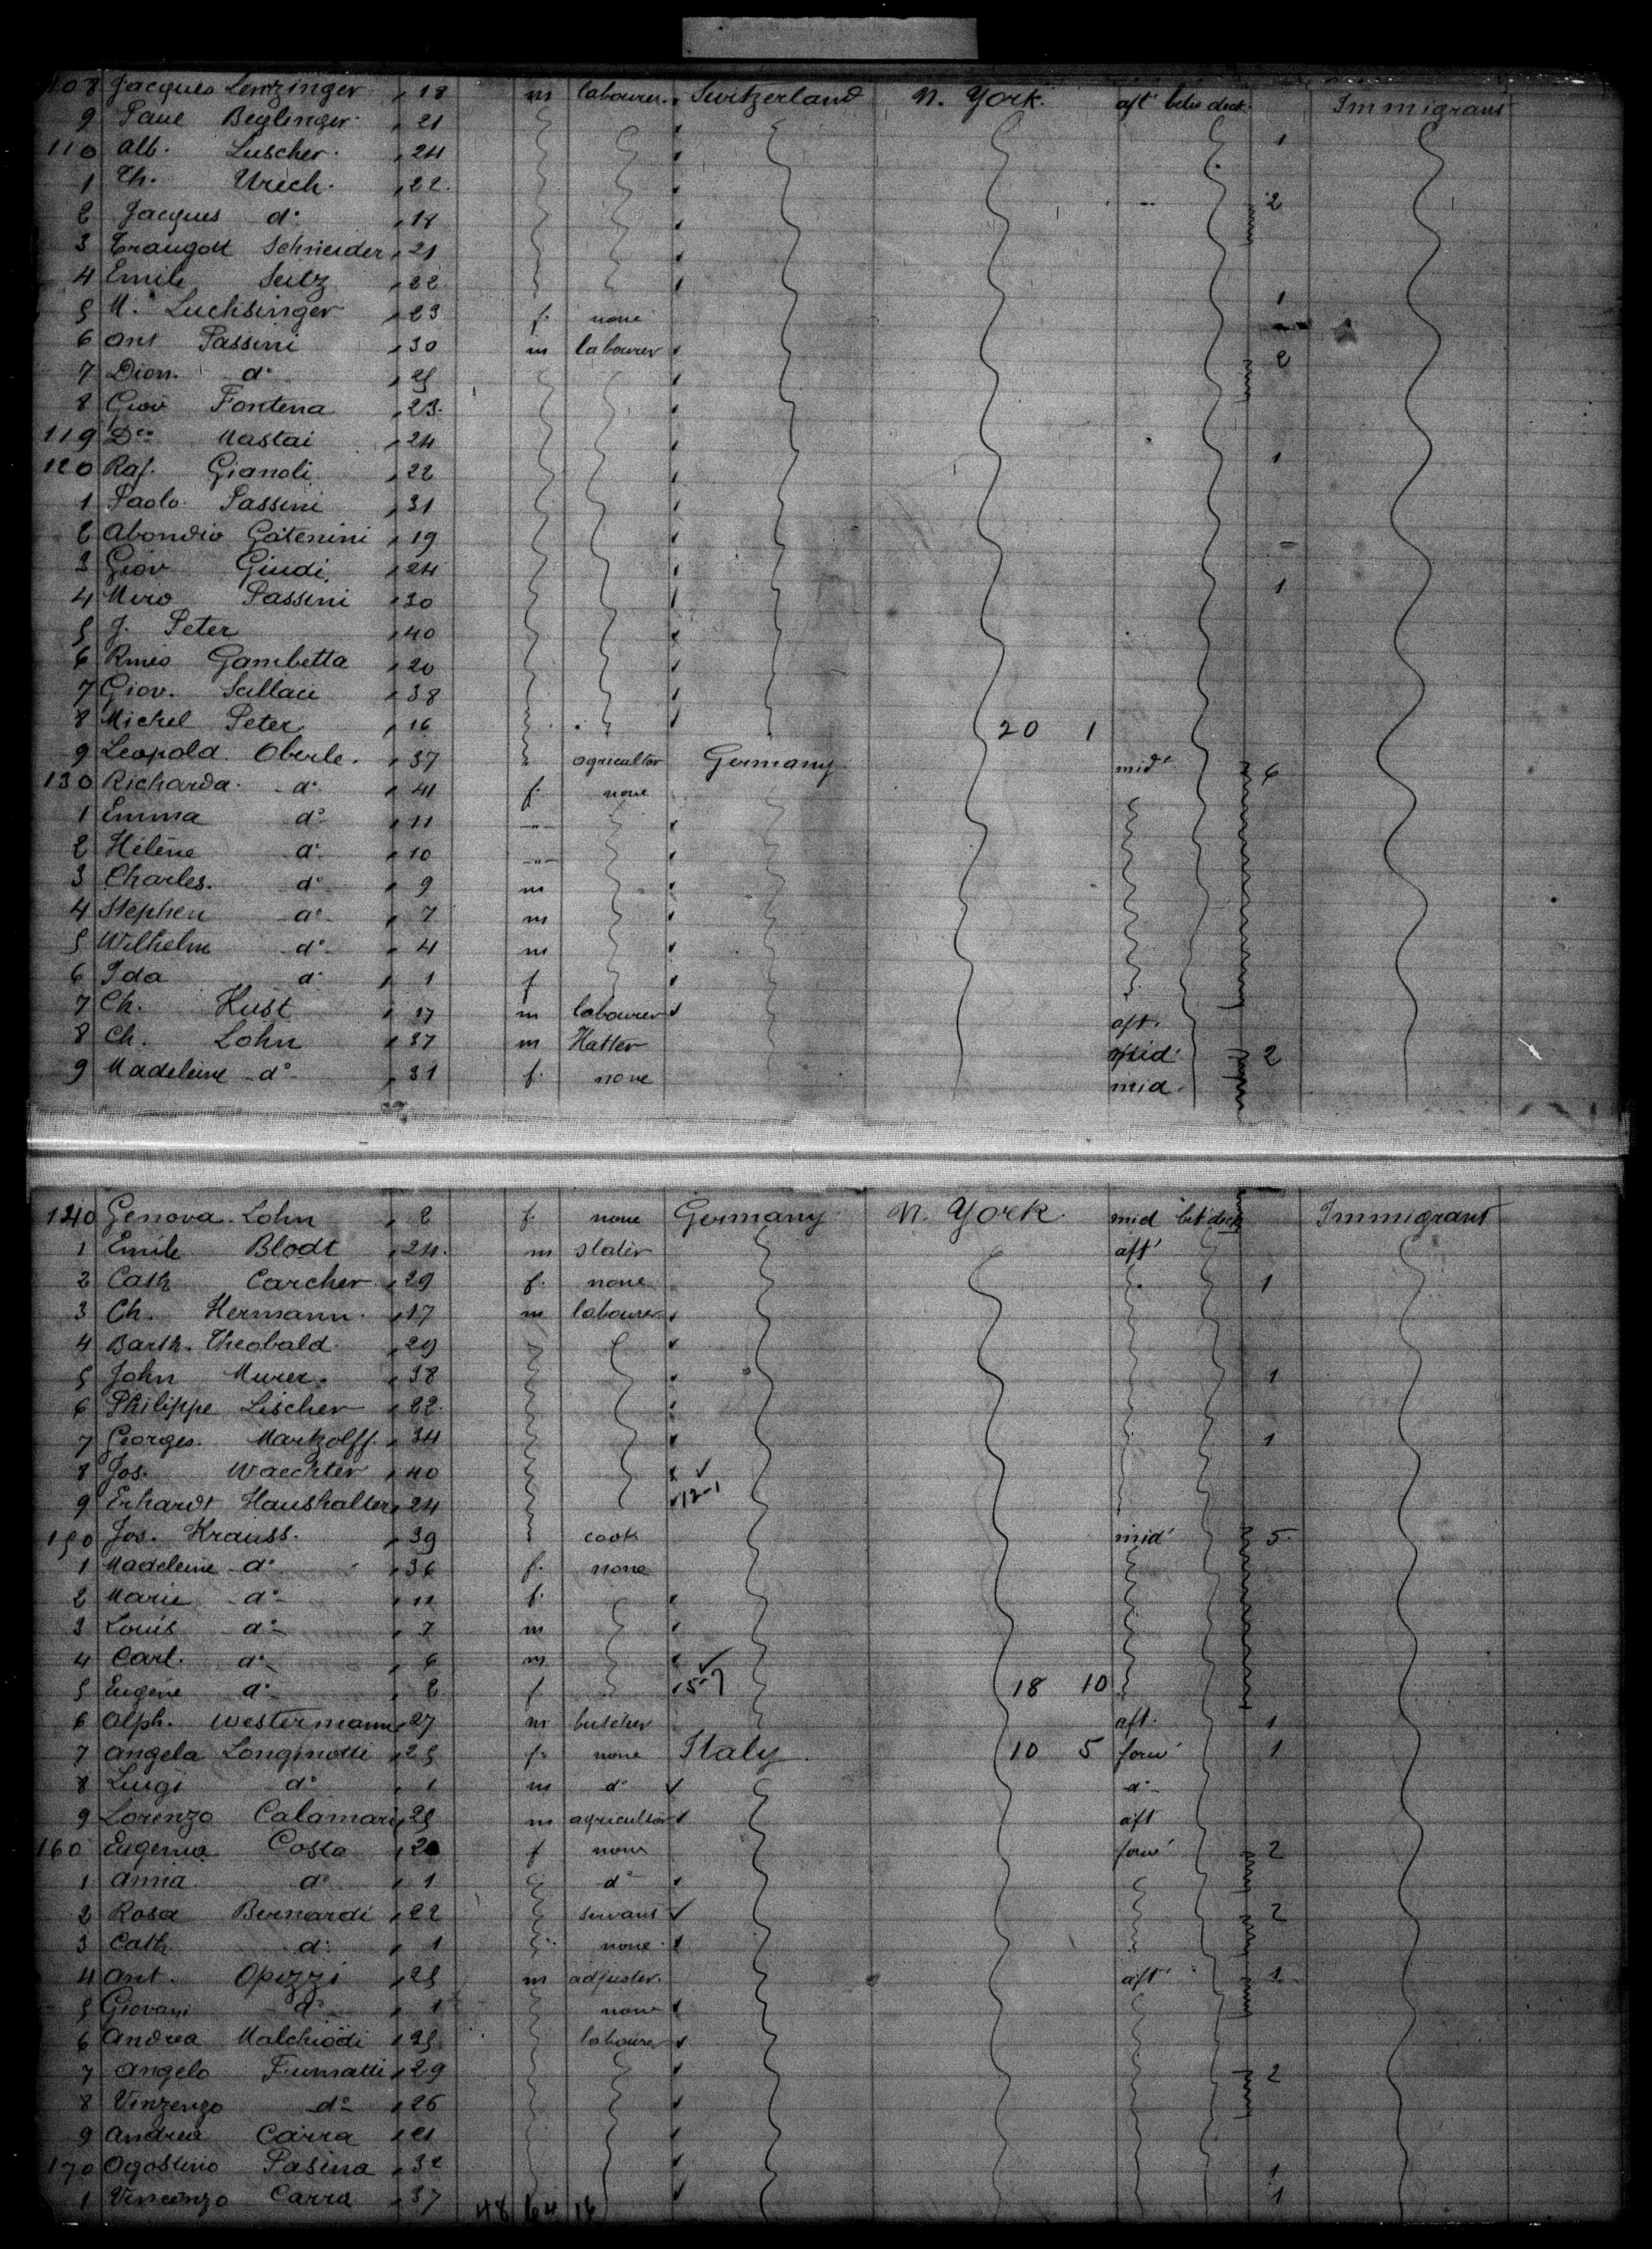 108 Jacques Lenzinger 18 m labourer Switzerland N. York aft betw deck Immigrant
9 Paul Beglinger 21 1
110 Alb. Luscher 24
1 Th. Urech 22 2
2 Jacques do 18
3 Traugott Schneider 21
4 Emile Seitz 22 1
5 M. Luchsinger 23 f. none
6 Ant Passini 30 m labourer 2
7 Dion. do 25
8 Giov Fontena 23
119 Dco Mastai 24 1
120 Raf. Gianoli 22
1 Paolo Passini 31
2 Abondio Gatenini 19
3 Giov Giudi 24 1
4 Miro Passini 30
5 J. Peter 40
6 Rmeo Gambetta 20
7 Giov. 38
8 Michel Peter 16 20 1
9 Leopold Oberle 37 agricultor Germany mid 6
130 Richarda do 41 f. none
1 Emma do 11 -"-
2 Hélène do 10 -"-
3 Charles do 9 m
4 Stephen do 7 m
5 Wilhelm do 4 m
6 Ida do 1 f
7 Ch. Kust 17 m labourer aft.
8 Ch. Lohn 37 m Hatter mid 2
9 Madeleine do 31 f. none mid.
140 Genova Lohn 2 f. none Germany N. York mid bet deck Immigrant
1 Emile Blodt 24 m slater aft
2 Cath Carcher 29 f. none 1
3 Ch. Hermann 17 m labourer
4 Barth. Theobald 29
5 John Murer 38 1
6 Philippe Lischer 22
7 Georges Markolff 34 1
8 Jos. Waechter 40
9 Erhardt Haushalter 24 12-1
150 Jos. Krauss 39 cook mid 5
1 Madeleine do 36 f. none
2 Marie do 11 f.
3 Louis do 7 m
4 Carl. do 6 m
5 Eugene do 2 f. 5-7 18 10
6 Alph. Westermann 27 m butcher aft. 1
7 Angela Longinotti 25 f. none Italy 10 5 forw 1
8 Luigi do 1 m do do
9 Lorenzo Calamari 25 m agricultor aft
160 Eugenia Costa 20 f none forw 2
1 Annia do 1 do
2 Rosa Bernardi 22 servant 2
3 Cath. do 1 none
4 Ant. Opizzi 25 m adjuster aft 1
5 Giovani do 1 none
6 Andrea Malchiodi 25 labourer
7 Angelo Fumatti 29 2
8 Vinzenzo do 26
9 Andrea Carra 21
170 Agostino Pasina 32 1
1 Vincenzo Carra 37 1
48 64 16